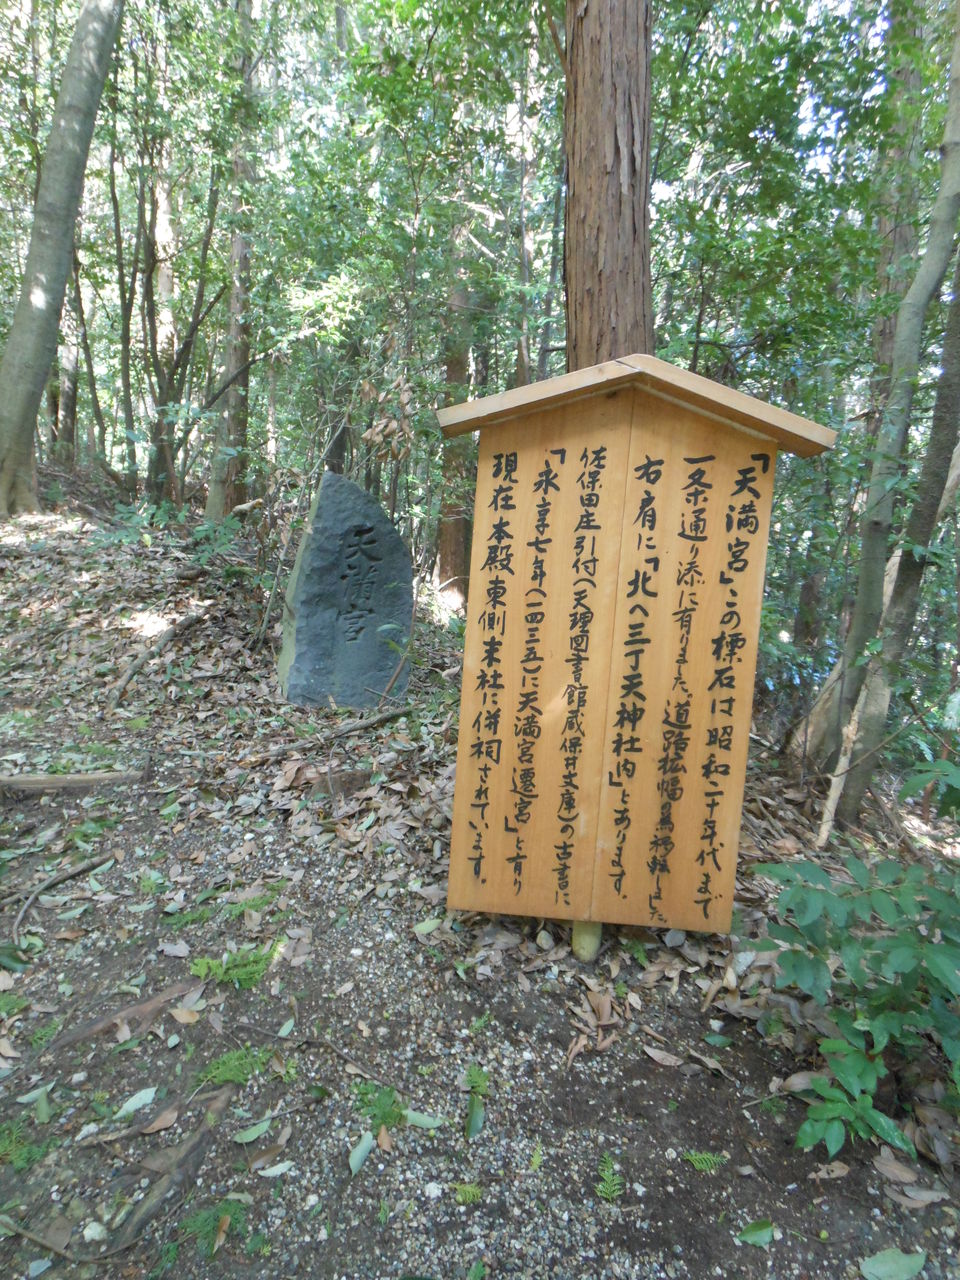 「天満宮」この標石は昭和二十年代まで
一条通り添に有りました。道路拡幅の為移転しました。
右肩に「北へ三丁天神社内」とあります。
佐保田庄引付(天理図書館蔵保井文庫)の古書に
「永享七年(一四三五)に天満宮遷宮」と有り
現在本殿東側末社に併祠されています。
天満宮